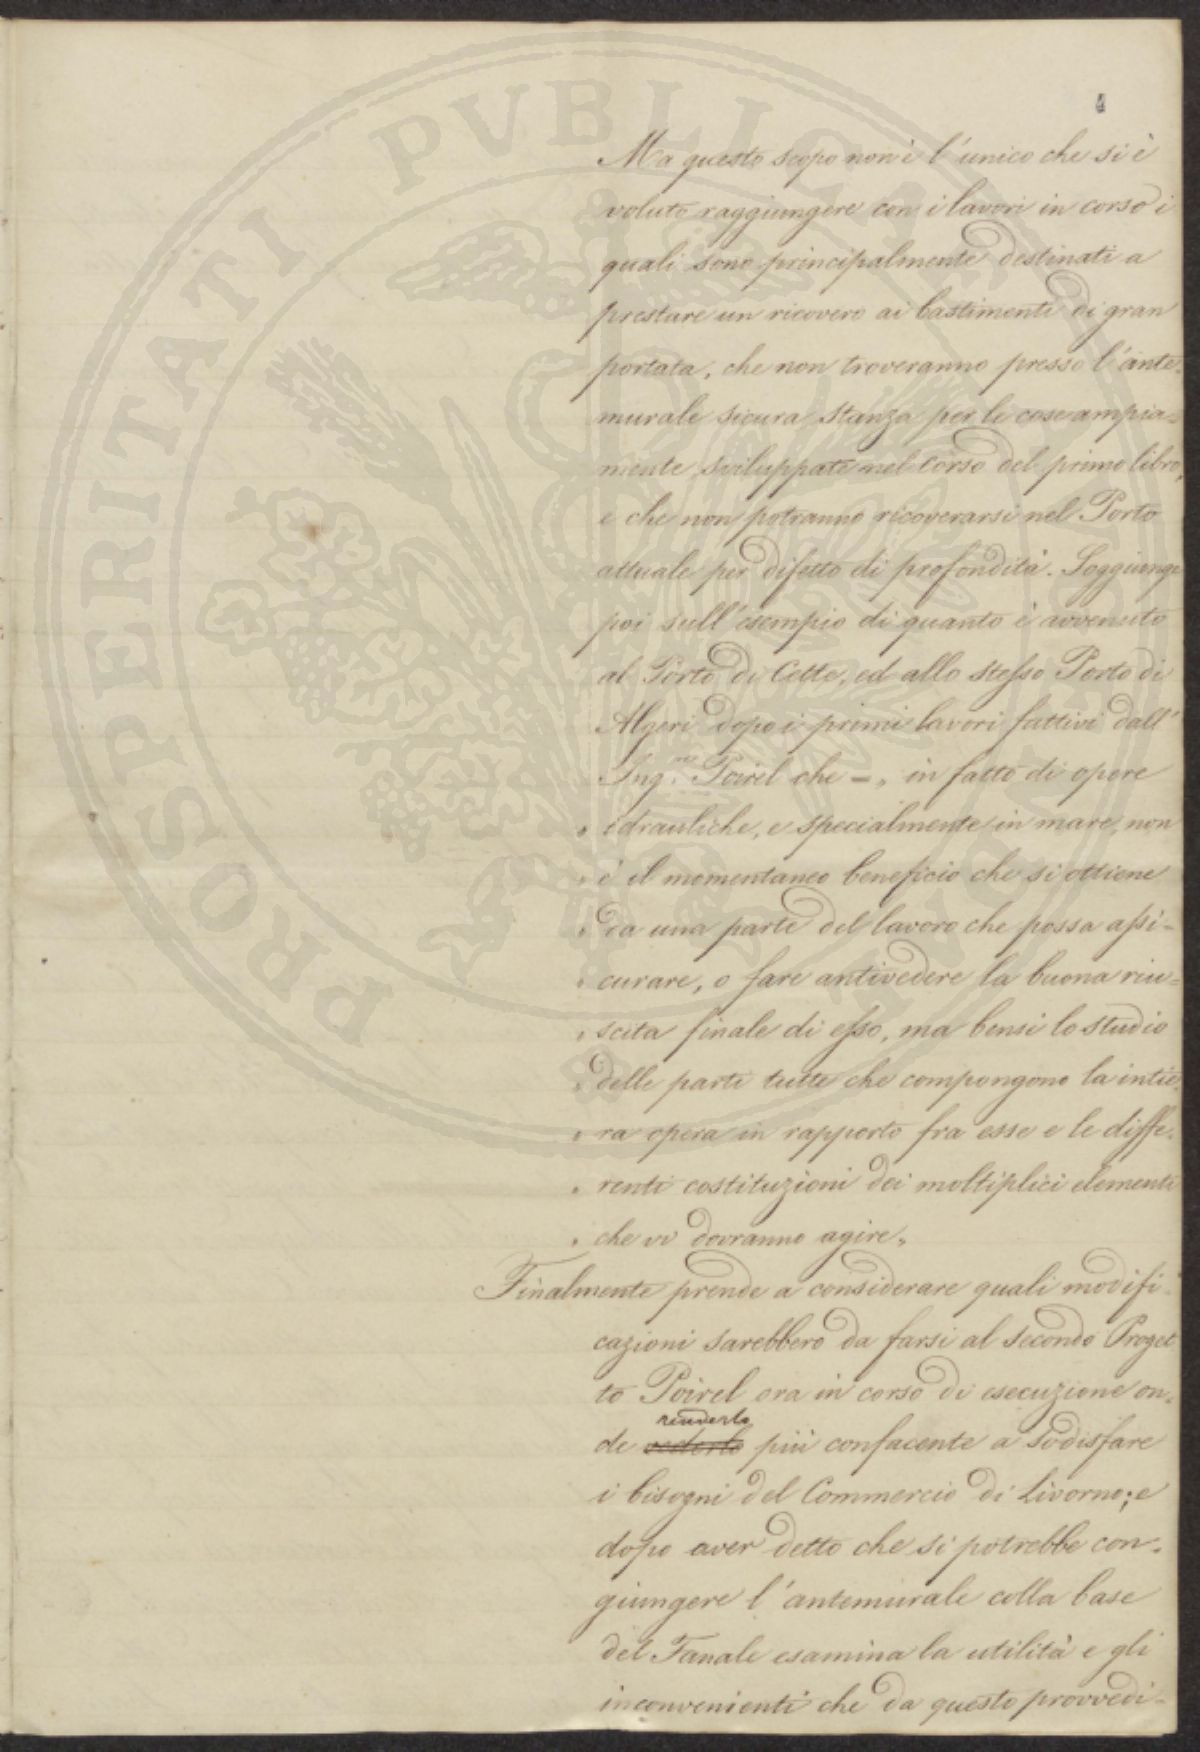 4
Ma questo scopo non è l'unico che si è
voluto raggiungere con i lavori in corso i
quali sono principalmente destinati a
prestare un ricovero ai bastimenti di gran
portata, che non troveranno presso l'ante=
murale sicura stanza per le cose ampia=
mente sviluppate nel corso del primo libro,
e che non potranno ricoverarsi nel Porto
attuale per difetto di profondità. Soggiunge
poi sull'esempio di quanto è avvenuto
al Porto di Cette, ed allo stesso Porto di
Algeri dopo i primi lavori fattivi dall'
Ing.re Poirel che – „ in fatto di opere
„ idrauliche, e specialmente in mare, non
„ è il momentaneo beneficio che si ottiene
„ da una parte del lavoro che possa assi=
„ curare, o fare antivedere la buona riu=
„ scita finale di esso, ma bensì lo studio
„ delle parti tutte che compongono la intie=
„ ra opera in rapporto fra esse e le diffe=
„ renti costituzioni dei moltiplici elementi
„ che vi dovranno agire „
Finalmente prende a considerare quali modifi=
cazioni sarebbero da farsi al secondo Proget
to Poirel ora in corso di esecuzione on=
renderlo
de vederlo più confacente a sodisfare
i bisogni del Commercio di Livorno; e
dopo aver detto che si potrebbe con=
giungere l'antemurale colla base
del Fanale esamina la utilità e gli
inconvenienti che da questo provvedi=
PROSPERITATI PVBLICAE